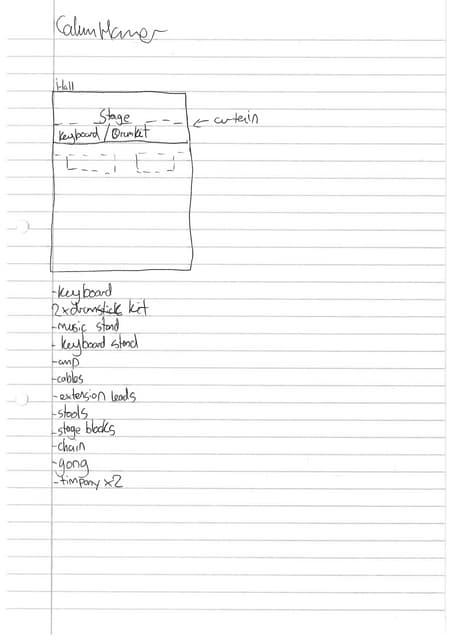 Hall
Stage
← curtain
Keyboard/Drumket
-keyboard
2x drumstick kit
-music stand
- keyboard stand
-amp
-cables
-extension leads
-stools
-stage blocks
-chain
-gong
-timpany x2